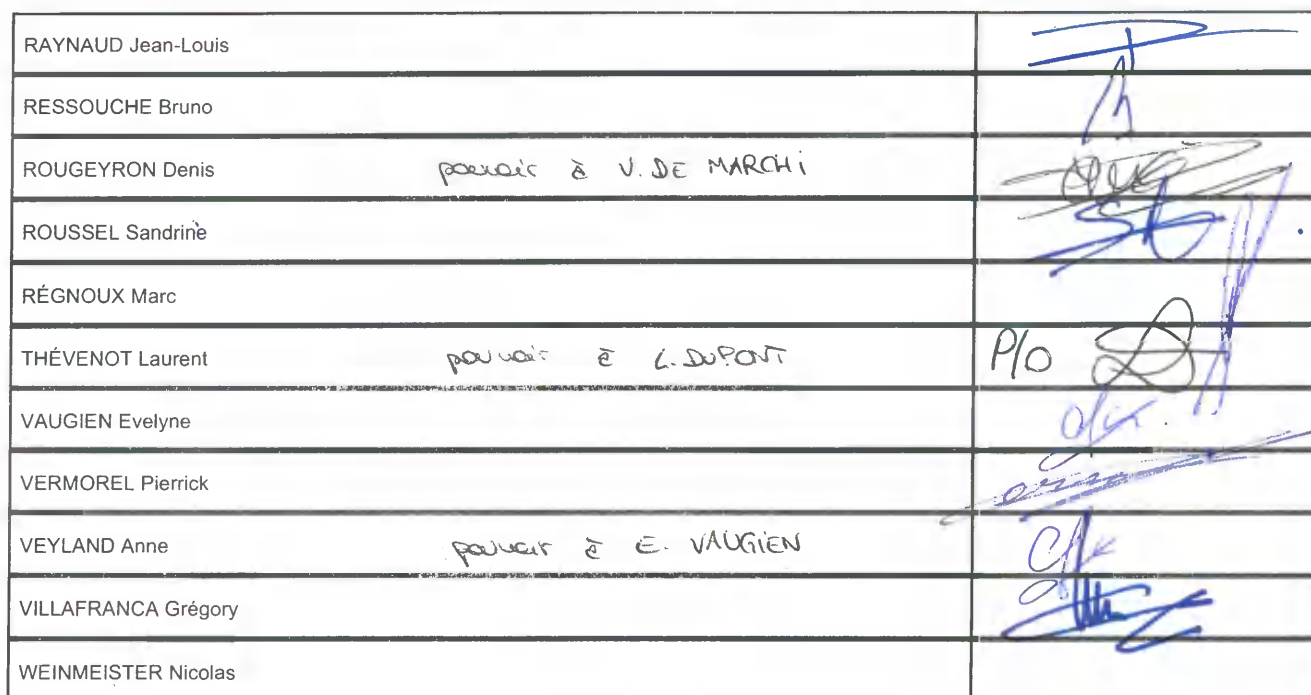 RAYNAUD Jean-Louis
RESSOUCHE Bruno
ROUGEYRON Denis pouvoir à V. DE MARCHI
ROUSSEL Sandrine
RÉGNOUX Marc
THÉVENOT Laurent pouvoir à L. DUPONT P/O
VAUGIEN Evelyne
VERMOREL Pierrick
VEYLAND Anne pouvoir à E. VAUGIEN
VILLAFRANCA Grégory
WEINMEISTER Nicolas